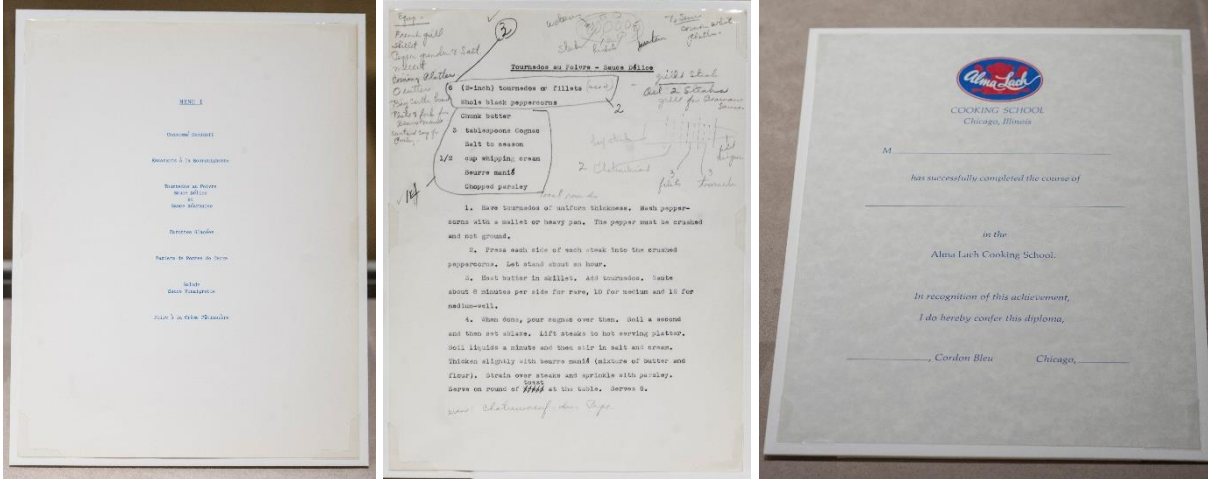 MENU I
Consommé
Escargots à la Bourguignonne
Tournedos au Poivre
Sauce Délice
et
Sauce Béarnaise
Carottes Glacées
Paniers de Pommes de Terre
Salade
Sauce Vinaigrette
Equip.
French grill
Skillet
Pepper grinder & Salt
Mallet
Corning Platter
3
Tournedos au Poivre - Sauce Délice
6 (2-inch) tournedos or fillets
Whole black peppercorns
2
Chunk butter
3 tablespoons Cognac
Salt to season
1/2 cup whipping cream
Beurre manié
Chopped parsley
14
2 Chateaubriand
1. Have tournedos of uniform thickness. Mash pepper-
corns with a mallet or heavy pan. The pepper must be crushed
and not ground.
2. Press each side of each steak into the crushed
peppercorns. Let stand about an hour.
3. Heat butter in skillet. Add tournedos. Saute
about 8 minutes per side for rare, 10 for medium and 12 for
medium-well.
4. When done, pour cognac over them. Boil a second
and then set ablaze. Lift steaks to hot serving platter.
Boil liquids a minute and then stir in salt and cream.
Thicken slightly with beurre manié (mixture of butter and
flour). Strain over steaks and sprinkle with parsley.
toast
Serve on round of at the table. Serves 6.
Chateauneuf-du-Pape
Alma Lach
COOKING SCHOOL
Chicago, Illinois
M
has successfully completed the course of
in the
Alma Lach Cooking School.
In recognition of this achievement,
I do hereby confer this diploma,
, Cordon Bleu Chicago,